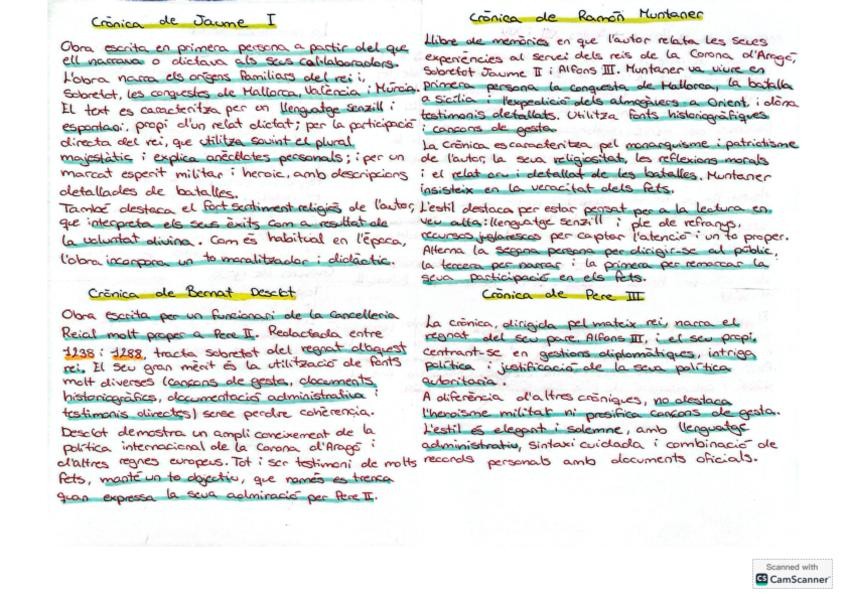 Crònica de Jaume I
Obra escrita en primera persona a partir del que
ell narrava o dictava als seus col·laboradors.
L'obra narra els orígens familiars del rei i,
sobretot, les conquestes de Mallorca, València i Múrcia.
El text es caracteritza per un llenguatge senzill i
espontani, propi d'un relat dictat; per la participació
directa del rei, que utilitza sovint el plural
majestàtic i explica anècdotes personals; i per un
marcat esperit militar i heroic, amb descripcions
detallades de batalles.
També destaca el fort sentiment religiós de l'autor,
que interpreta els seus èxits com a resultat de
la voluntat divina. Com és habitual en l'època,
l'obra incorpora un to moralitzador i didàctic.
Crònica de Bernat Desclot
Obra escrita per un funcionari de la Cancelleria
Reial molt proper a Pere II. Redactada entre
1238 i 1288, tracta sobretot del regnat d'aquest
rei. El seu gran mèrit és la utilització de fonts
molt diverses (cançons de gesta, documents
historiogràfics, documentació administrativa i
testimonis directes) sense perdre coherència.
Desclot demostra un ampli coneixement de la
política internacional de la Corona d'Aragó i
d'altres regnes europeus. Tot i ser testimoni de molts
fets, manté un to objectiu, que només es trenca
quan expressa la seua admiració per Pere II.
Crònica de Ramón Muntaner
Llibre de memòries en que l'autor relata les seues
experiències al servei dels reis de la Corona d'Aragó,
sobretot Jaume II i Alfons III. Muntaner va viure en
primera persona la conquesta de Mallorca, la batalla
a Sicília i l'expedició dels almogàvers a Orient, i dóna
testimonis detallats. Utilitza fonts historiogràfiques
i cançons de gesta.
La Crònica es caracteritza pel monarquisme i patriotisme
de l'autor, la seua religiositat, les reflexions morals
i el relat cru i detallat de les batalles. Muntaner
insisteix en la veracitat dels fets.
L'estil destaca per estar pensat per a la lectura en
veu alta: llenguatge senzill i ple de refranys,
recursos joglarescos per captar l'atenció i un to proper.
Alterna la segona persona per dirigir-se al públic,
la tercera per narrar i la primera per remarcar la
seua participació en els fets.
Crònica de Pere III
La crònica, dirigida pel mateix rei, narra el
regnat del seu pare, Alfons III, i el seu propi,
centrant-se en gestions diplomàtiques, intriga
política i justificació de la seua política
autoritària.
A diferència d'altres cròniques, no destaca
l'heroisme militar ni prosifica cançons de gesta.
L'estil és elegant i solemne, amb llenguatge
administratiu, sintaxi cuidada i combinació de
records personals amb documents oficials.
Scanned with
CS CamScanner